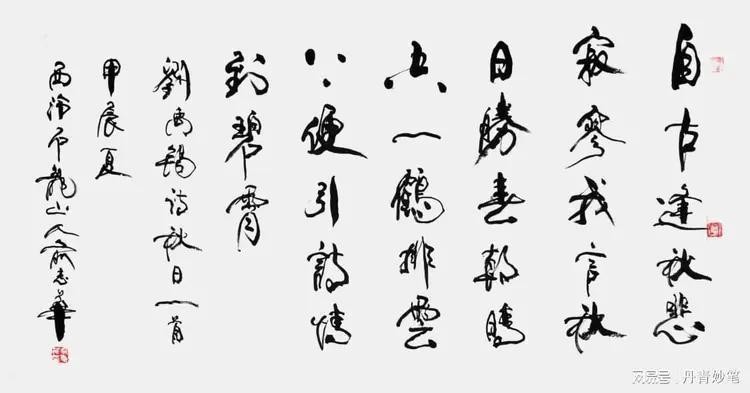 自古逢秋悲
寂寥我言秋
日勝春朝晴
空一鶴排雲
上便引詩情
到碧霄
劉禹錫詩秋日一首
甲辰夏
西龍山人俞志華
网易号 丹青妙笔